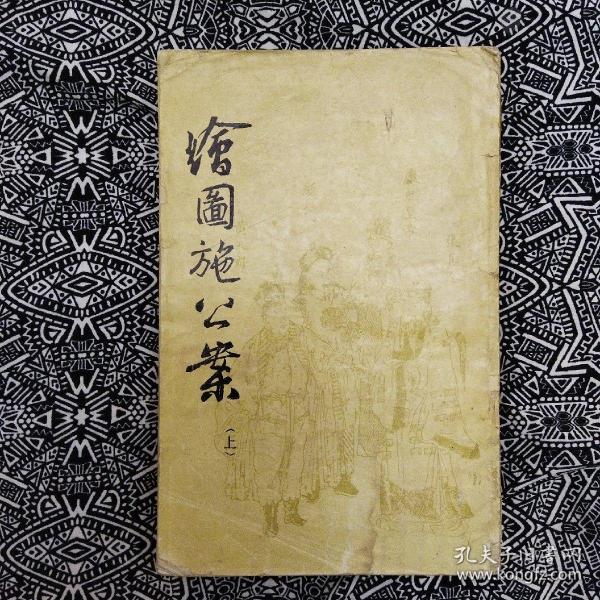 繪圖施公案
（上）
孔夫子旧書网
www.kongfz.com